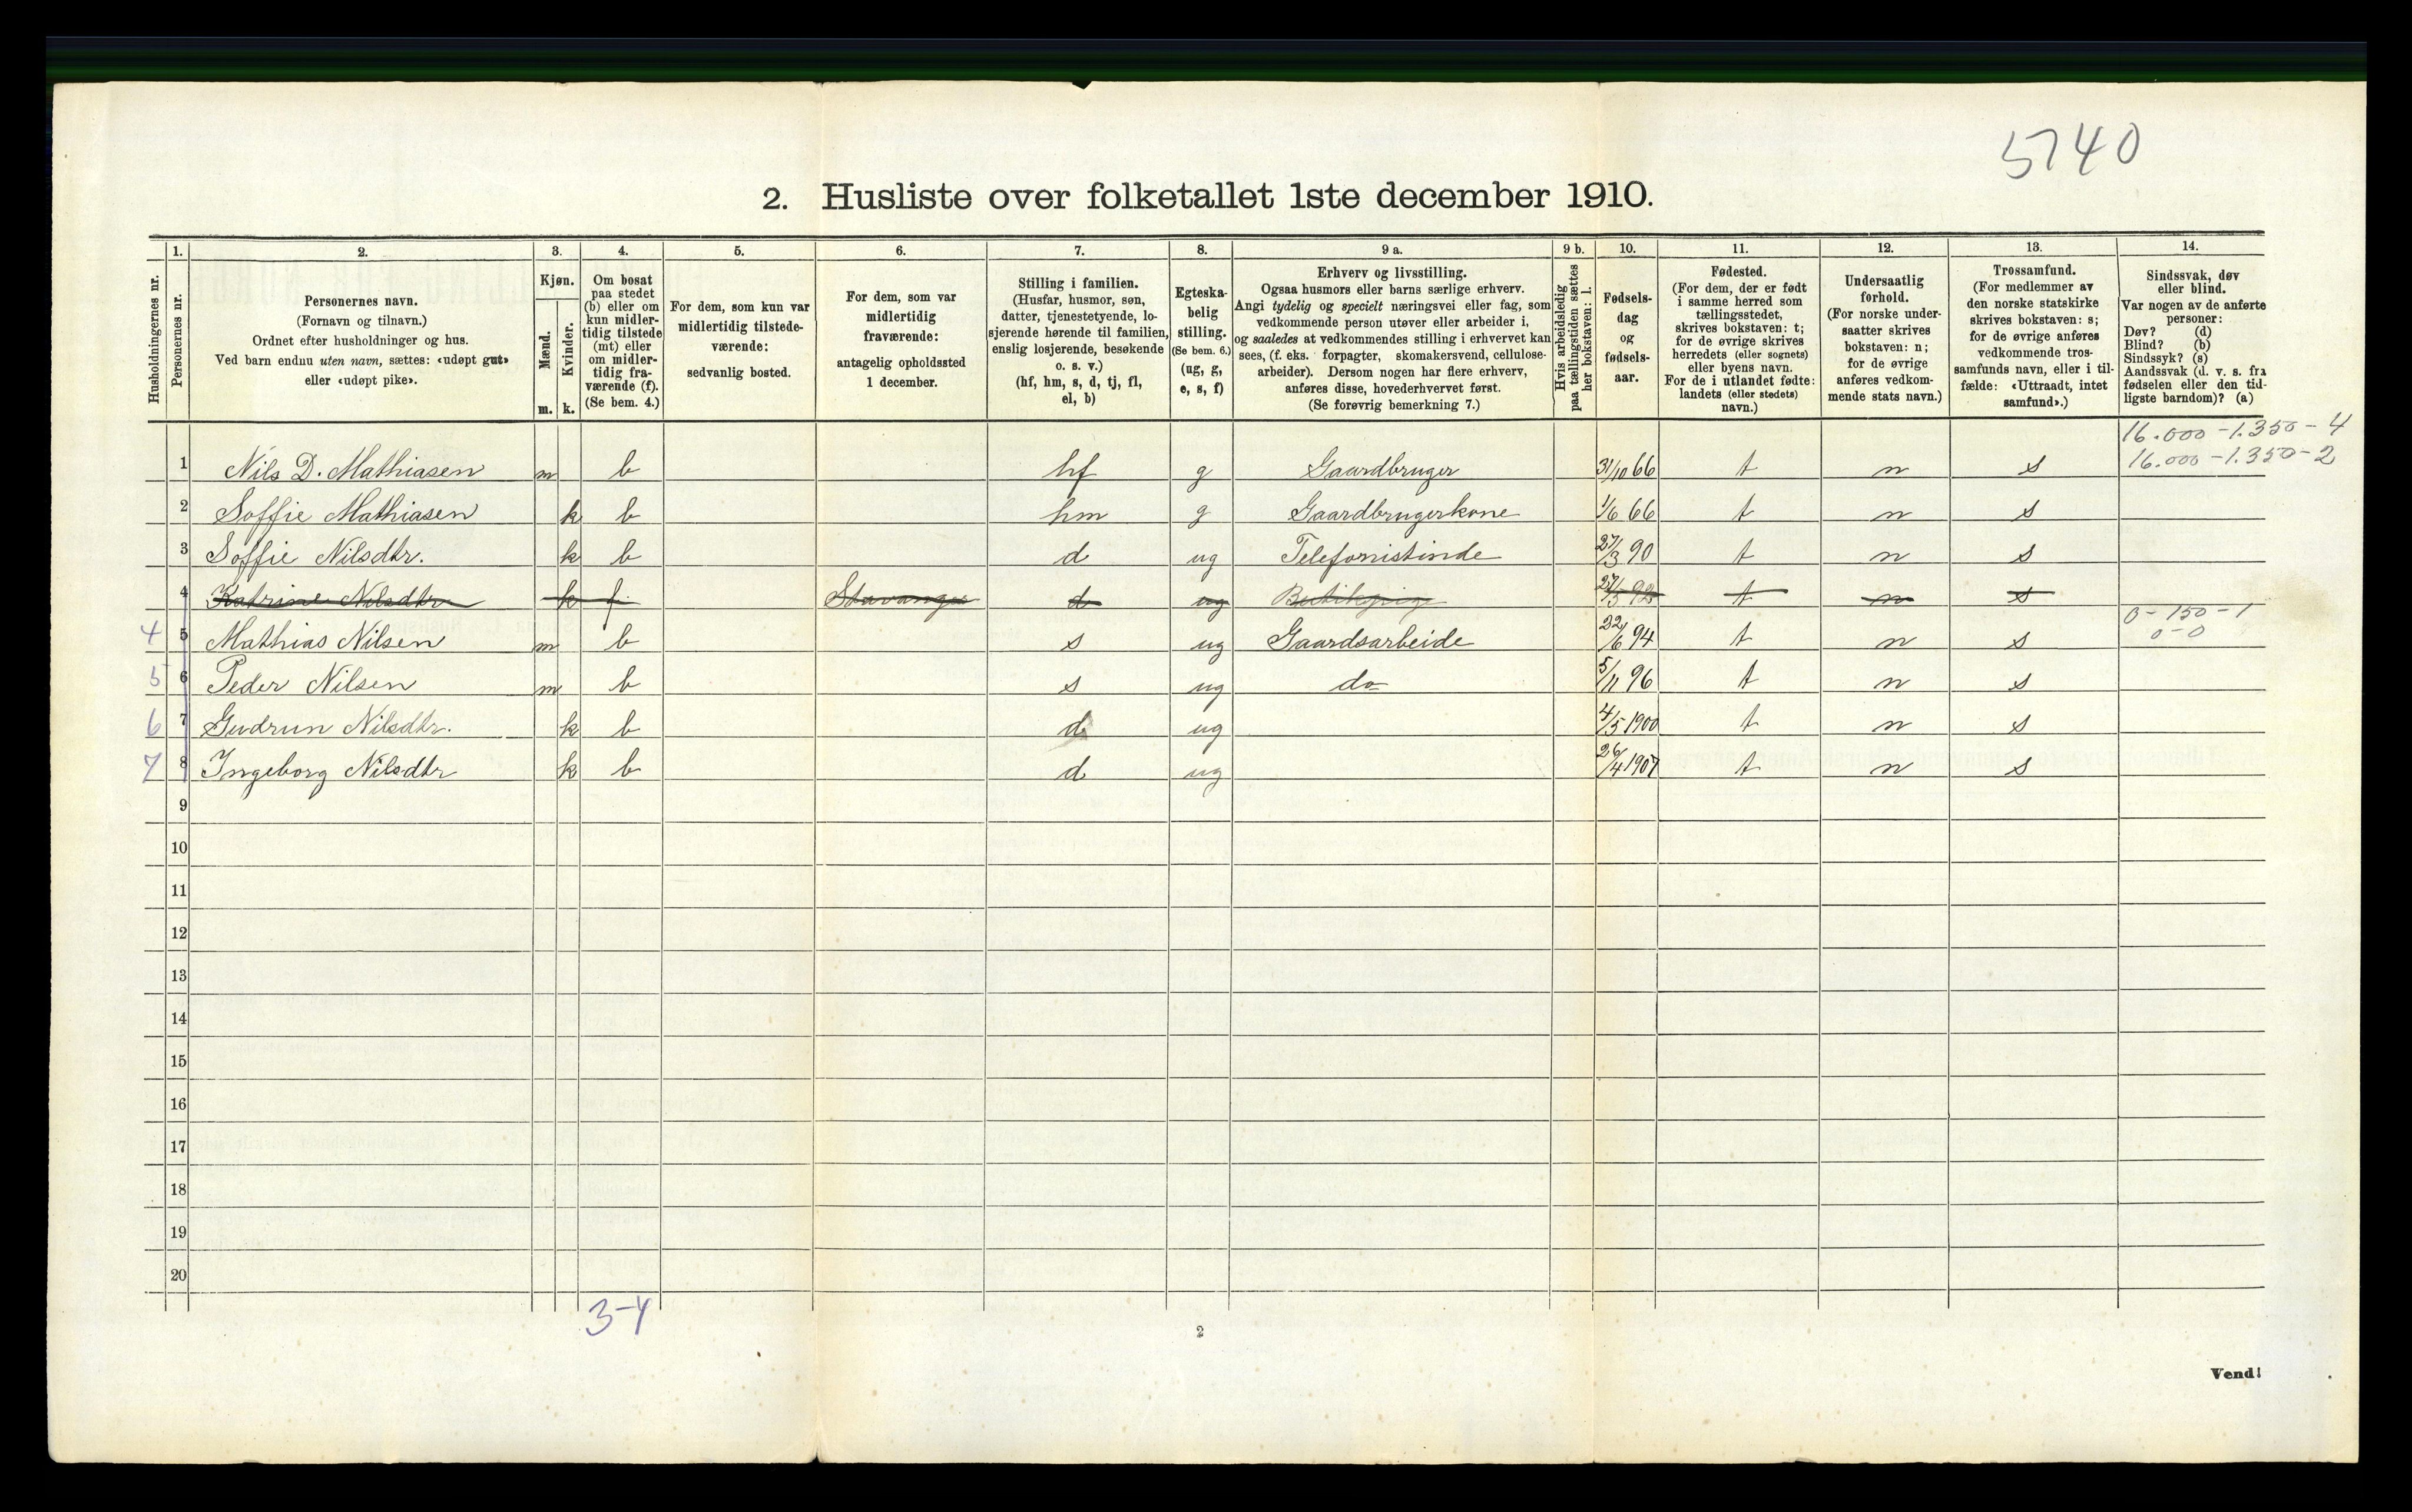 5740
2. Husliste over folketallet 1ste december 1910.
Husholdningernes nr.
1. Personernes nr.
2. Personernes navn.
(Fornavn og tilnavn.)
Ordnet efter husholdninger og hus.
Ved barn endnu uten navn, sættes: «udøpt gut»
eller «udøpt pike».
3. Kjøn.
Mænd. m.
Kvinder. k.
4. Om bosat
paa stedet
(b) eller om
kun midler-
tidig tilstede
(mt) eller
om midler-
tidig fra-
værende (f).
(Se bem. 4.)
5. For dem, som kun var
midlertidig tilstede-
værende:
sedvanlig bosted.
6. For dem, som var
midlertidig
fraværende:
antagelig opholdssted
1 december.
7. Stilling i familien.
(Husfar, husmor, søn,
datter, tjenestetyende, lo-
sjerende hørende til familien,
enslig losjerende, besøkende
o. s. v.)
(hf, hm, s, d, tj, fl,
el, b)
8. Egteska-
belig
stilling.
(Se bem. 6.)
(ug, g,
e, s, f)
9 a. Erhverv og livsstilling.
Ogsaa husmors eller barns særlige erhverv.
Angi tydelig og specielt næringsvei eller fag, som
vedkommende person utøver eller arbeider i,
og saaledes at vedkommendes stilling i erhvervet kan
sees, (f. eks. forpagter, skomakersvend, cellulose-
arbeider). Dersom nogen har flere erhverv,
anføres disse, hovederhvervet først.
(Se forøvrig bemerkning 7.)
9 b. Hvis arbeidsledig
paa tællingstiden sættes
her bokstaven: l.
10. Fødsels-
dag
og
fødsels-
aar.
11. Fødested.
(For dem, der er født
i samme herred som
tællingsstedet,
skrives bokstaven: t;
for de øvrige skrives
herredets (eller sognets)
eller byens navn.
For de i utlandet fødte:
landets (eller stedets)
navn.)
12. Undersaatlig
forhold.
(For norske under-
saatter skrives
bokstaven: n;
for de øvrige
anføres vedkom-
mende stats navn.)
13. Trossamfund.
(For medlemmer av
den norske statskirke
skrives bokstaven: s;
for de øvrige anføres
vedkommende tros-
samfunds navn, eller i til-
fælde: «Uttraadt, intet
samfund».)
14. Sindssvak, døv
eller blind.
Var nogen av de anførte
personer:
Døv? (d)
Blind? (b)
Sindssyk? (s)
Aandssvak (d. v. s. fra
fødselen eller den tid-
ligste barndom)? (a)
16.000 - 1.350 - 4
16.000 - 1.350 - 2
1 Nils D. Mathiasen m b hf g Gaardbruger 31/10 66 t n s
2 Soffie Mathiasen k b hm g Gaardbrugerkone 1/6 66 t n s
3 Soffie Nilsdtr. k b d ug Telefonistinde 27/3 90 t n s
4 Katrine Nilsdtr k f Stavanger d ug Butikpige t n s
0 - 150 - 1
0-0
4 5 Mathias Nilsen m b s ug Gaardsarbeide 22/6 94 t n s
5 6 Peder Nilsen m b s ug do 5/11 96 t n s
6 7 Gudrun Nilsdtr. k b d ug 4/5 1900 t n s
7 8 Ingeborg Nilsdtr k b d ug 26/4 1907 t n s
9
10
11
12
13
14
15
16
17
18
19
20
3-4
2
Vend!